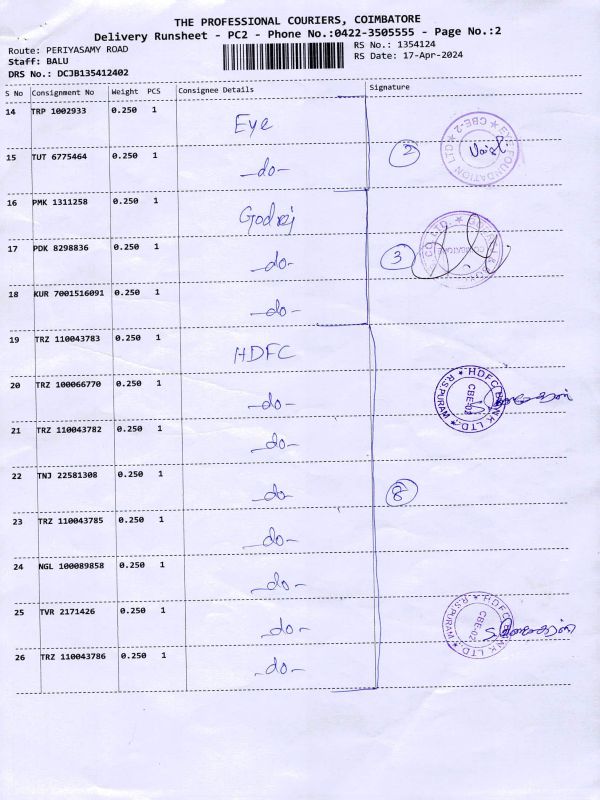 THE PROFESSIONAL COURIERS, COIMBATORE
Delivery Runsheet - PC2 - Phone No.:0422-3505555 - Page No.:2
Route: PERIYASAMY ROAD
RS No.: 1354124
Staff: BALU
RS Date: 17-Apr-2024
DRS No.: DCJB135412402
S No Consignment No Weight PCS Consignee Details Signature
14 TRP 1002933 0.250 1 Eye
15 TUT 6775464 0.250 1 -do- 2
EYE FOUNDATION LTD. CBE-2
16 PMK 1311258 0.250 1 Godrej
17 PDK 8298836 0.250 1 -do- 3
18 KUR 7001516091 0.250 1 -do-
19 TRZ 110043783 0.250 1 HDFC
20 TRZ 100066770 0.250 1 -do-
HDFC BANK LTD. R.S.PURAM CBE-02
21 TRZ 110043782 0.250 1 -do-
22 TNJ 22581308 0.250 1 -do- 8
23 TRZ 110043785 0.250 1 -do-
24 NGL 100089858 0.250 1 -do-
25 TVR 2171426 0.250 1 -do-
HDFC BANK LTD. R.S.PURAM CBE-02
26 TRZ 110043786 0.250 1 -do-